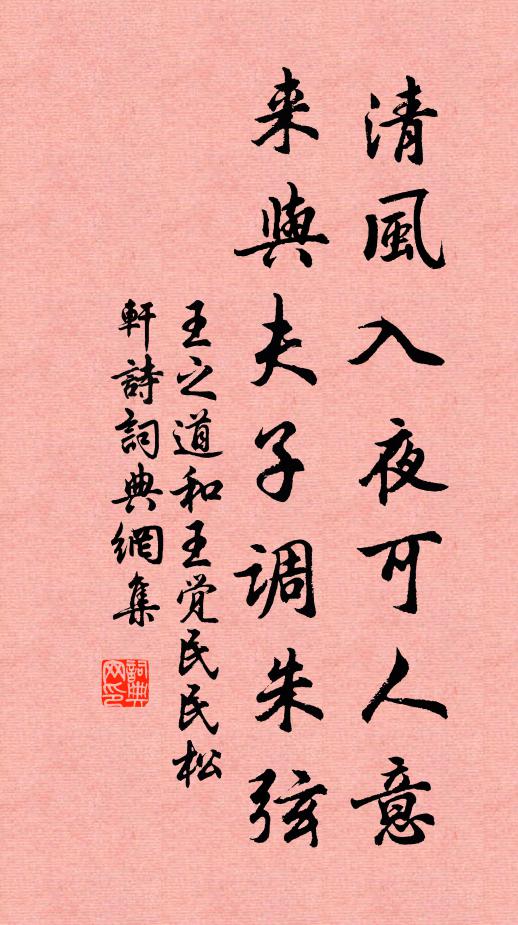 清風入夜可人意
来與夫子调朱弦
王之道和王觉民民松
軒詩詞典網集
詞典网印